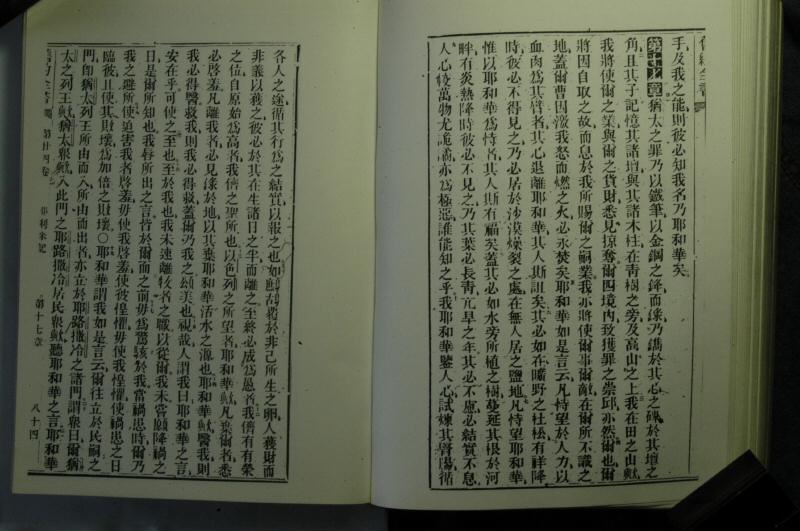 舊約全書
手及我之能則彼必知我名乃耶和華矣
第十七章猶太之罪乃以鐵筆以金鋼之鋒而錄乃鐫於其心之碑於其壇之
角且其子記憶其諸壇與其諸木柱在青樹之旁及高山之上我在田之山歟
我將使爾之業與爾之貨財悉見掠奪爾四境內致獲罪之崇邱亦然爾也爾
將因自取之故而息於我所賜爾之嗣業我亦將使爾事爾敵在爾所不識之
地蓋爾曹因激我怒而燃之火必永焚矣耶和華如是言云凡恃望於人力以
血肉為其臂者其心退離耶和華其人斯詛矣其必如在曠野之杜松有祥降
時彼必不得見之乃必居於沙漠燥裂之處在無人居之鹽地凡恃望耶和華
惟以耶和華為恃者其人斯有福矣蓋其必如水旁所植之樹蔓延其根於河
畔有炎熱降時彼必不見之乃其葉必長青亢旱之年其必不慮必結實不息
人心較萬物尤詭譎亦為極惡誰能知之乎我耶和華鑒人心試煉其腎腸循
各人之途循其行為之結實以報之也如鷓鴣覆於非己所生之卵人獲財而
非義以獲之彼必於其在生諸日之半而離之至終必成為愚者我儕有有榮
之位自原始為高者我儕之聖所也以色列之所望者耶和華歟凡棄爾者悉
必啓羞凡離我者必見錄於地以其棄耶和華活水之源也耶和華歟醫我則
我必得醫救我則我必得救蓋爾乃我之頌美也視哉人謂我曰耶和華之言
安在乎可使之至也至於我也我未速離牧者之職以從爾我未嘗願降禍之
日是爾所知也我唇所出之言皆於爾面之前毋為驚駭於我當禍患時爾乃
我之避所使迫害我者啓羞毋使我啓羞使彼惶懼毋使我惶懼使禍患之日
臨彼且使其財壞為加倍之財壞○耶和華謂我如是言云爾往立於民嗣之
門即猶太列王所由而入所由而出者亦立於耶路撒冷之諸門謂衆曰爾猶
太之列王與猶太衆歟入此門之耶路撒冷居民衆歟聽耶和華之言耶和華
舊約全書 第廿四卷 耶利米記 第十七章 八十四